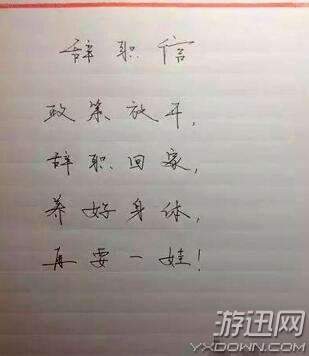 辞职信
政策放开,
辞职回家,
养好身体,
再要一娃!
游迅网
YXDOWN.COM